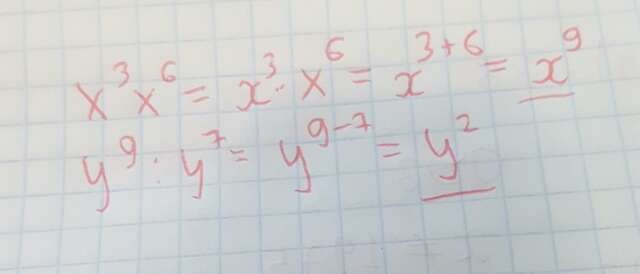 x³x⁶ = x³·x⁶ = x³⁺⁶ = x⁹
y⁹ : y⁷ = y⁹⁻⁷ = y²